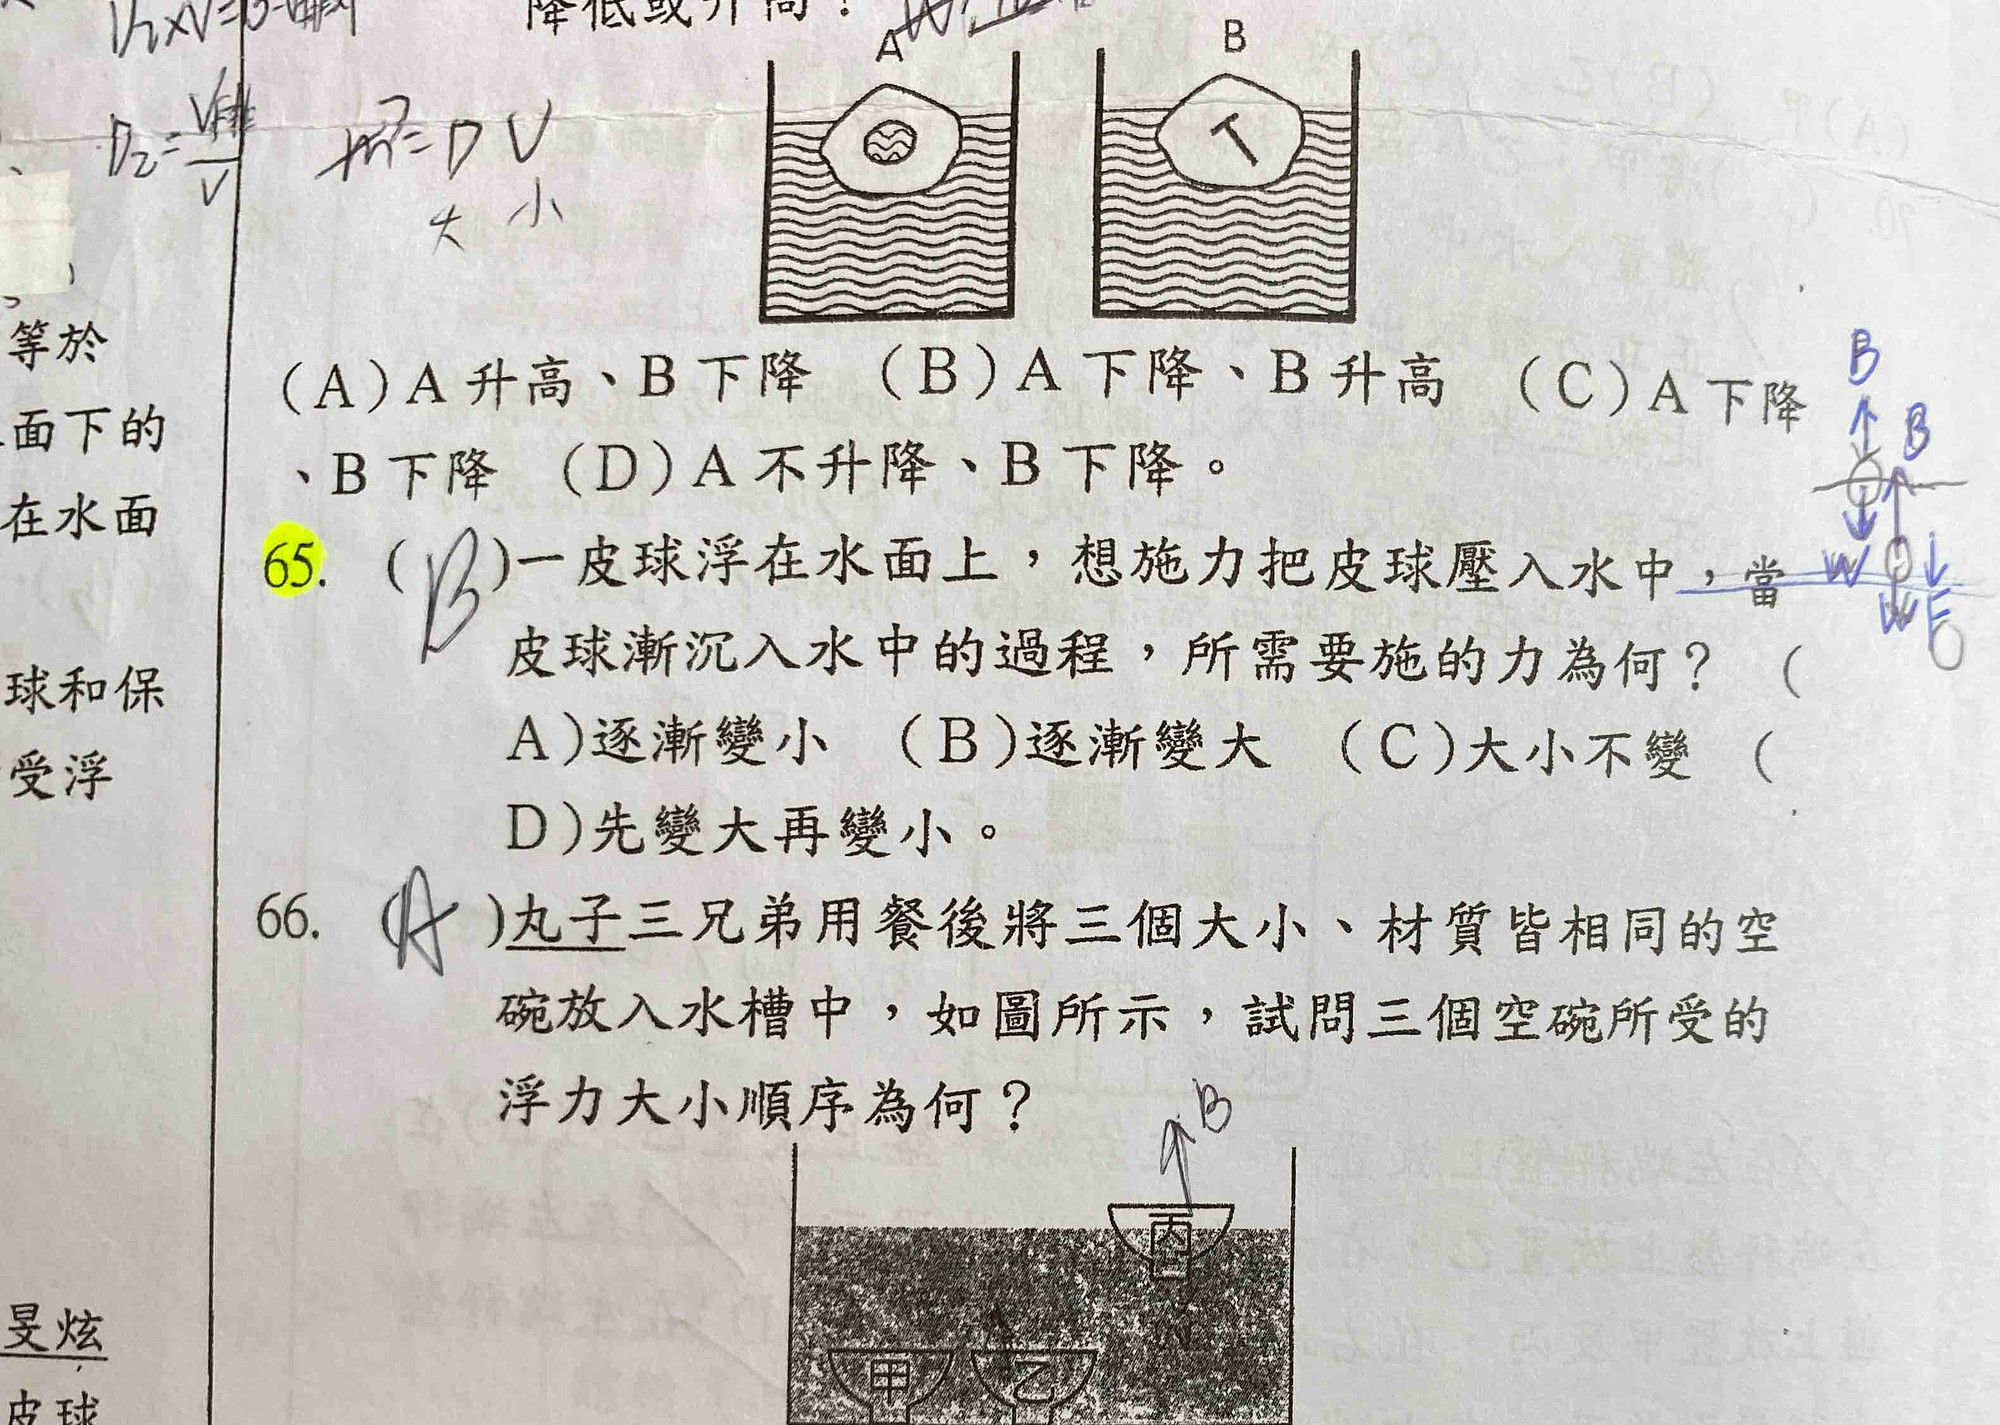 降低或升高？
A
B
D₂=V排/V
m=DV
大 小
(A)A 升高、B 下降 (B)A 下降、B 升高 (C)A 下降
、B 下降 (D)A 不升降、B 下降。
65. (B)一皮球浮在水面上，想施力把皮球壓入水中，當
皮球漸沉入水中的過程，所需要施的力為何？ (
A)逐漸變小 (B)逐漸變大 (C)大小不變 (
D)先變大再變小。
B
B
W
W F
66. (A)丸子三兄弟用餐後將三個大小、材質皆相同的空
碗放入水槽中，如圖所示，試問三個空碗所受的
浮力大小順序為何？
B
丙
甲 乙
等於
面下的
在水面
球和保
受浮
旻炫
皮球